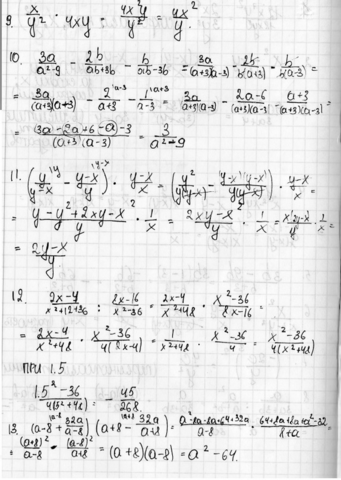 9. x/y² · 4xy = 4x²y/y² = 4x²/y.
10. 3a/(a²-9) - 2b/(ab+3b) - b/(ab-3b) = 3a/((a+3)(a-3)) - 2b/(b(a+3)) - b/(b(a-3)) =
= 3a/((a+3)(a-3)) - 2/(a+3) - 1/(a-3) = 3a/((a+3)(a-3)) - (2a-6)/((a+3)(a-3)) - (a+3)/((a+3)(a-3)) =
= (3a-2a+6-a-3)/((a+3)(a-3)) = 3/(a²-9)
11. (y/(y-x) - (y-x)/y) · (y-x)/x = (y²/(y(y-x)) - (y-x)(y-x)/(y(y-x))) · (y-x)/x =
= (y-y²+2xy-x²)/y · 1/x = (2xy-x²)/y · 1/x =
= (2y-x)/y
12. (2x-4)/(x²+12x+36) : (2x-16)/(x²-36) = (2x-4)/(x²+48) · (x²-36)/(8x-16) =
= (2x-4)/(x²+48) · (x²-36)/(4(2x-4)) = 1/(x²+48) · (x²-36)/4 = (x²-36)/(4(x²+48))
ПРИ 1.5
(1.5²-36)/(4(1.5²+48)) = -45/268.
13. (a-8+32a/(a-8)) (a+8-32a/(a+8)) = (a²-8a-8a-64+32a)/(a-8) · (64+8a+8a+a²-32)/(8+a) =
= (a+8)²/(a-8) · (a-8)²/(a+8) = (a+8)(a-8) = a²-64.